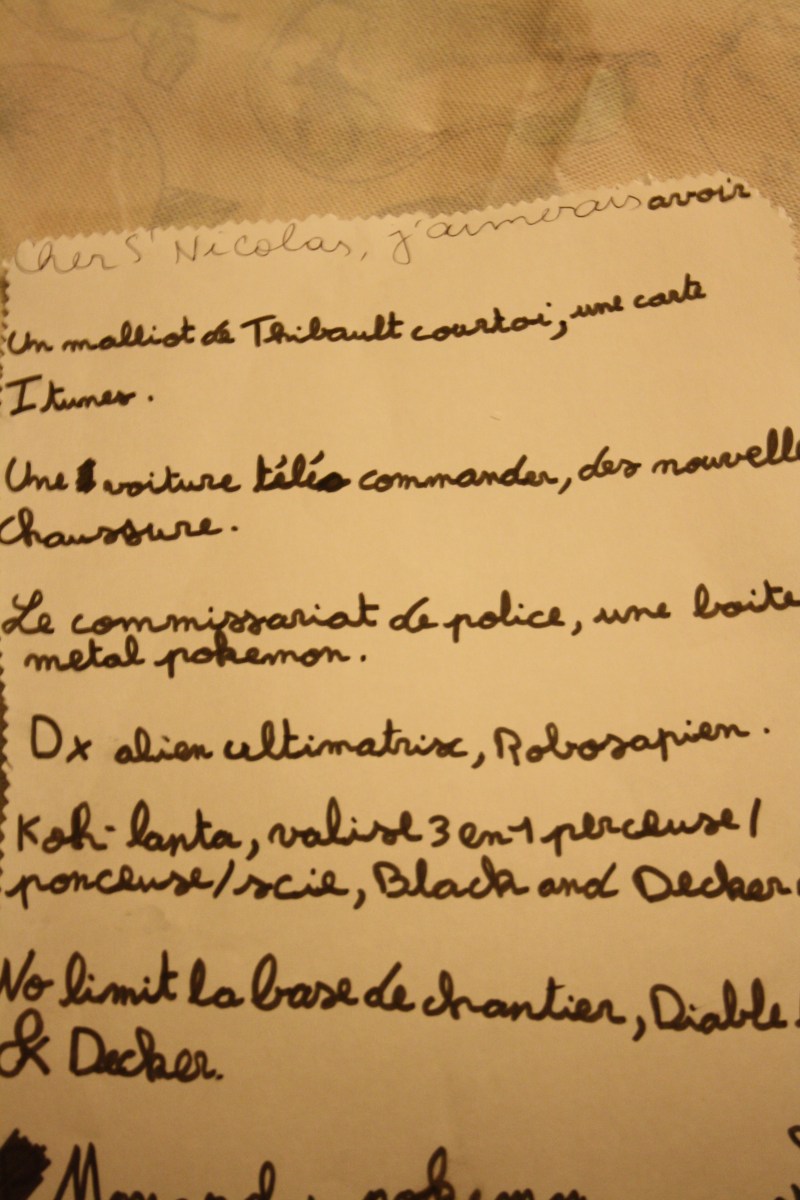 Cher St Nicolas, j'aimerais avoir
Un malliot de Thibault courtoi, une carte
Itunes.
Une voiture télé commander, des nouvelle
chaussure.
Le commissariat de police, une boite
metal pokemon.
Dx alien ultimatrix, Robosapien.
Koh-lanta, valise 3 en 1 perceuse/
ponceuse/scie, Black and Decker
No limit la base de chantier, Diable
& Decker.
pokemon